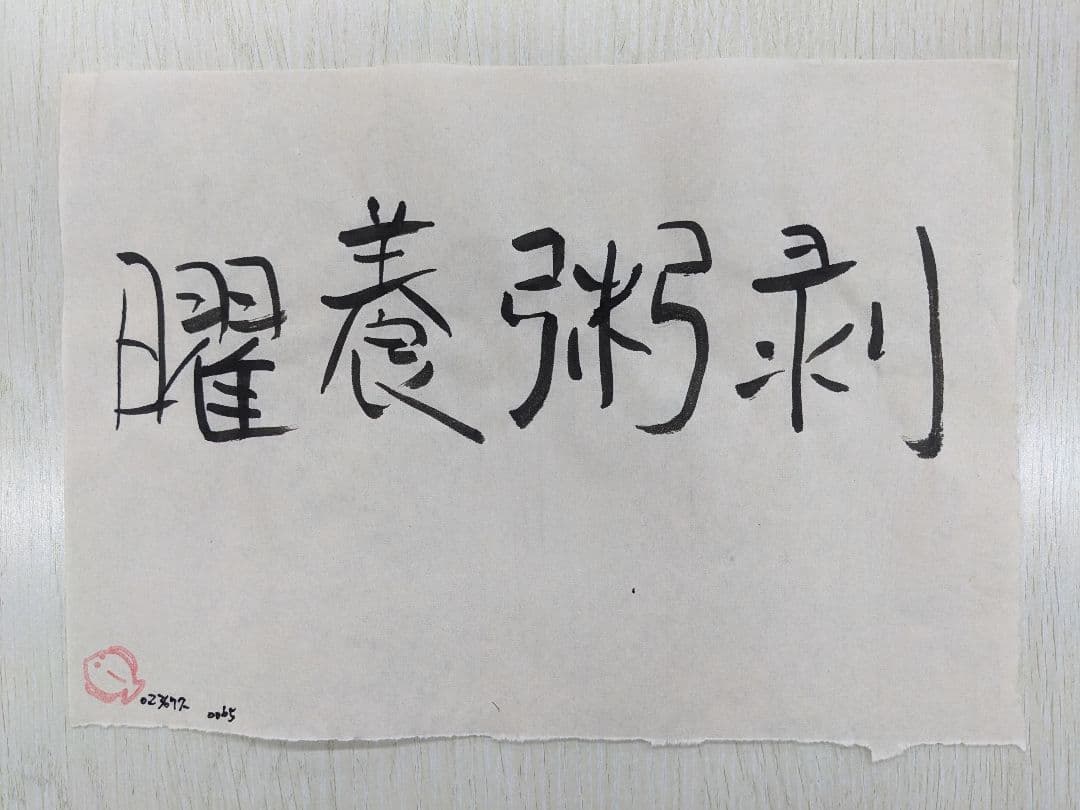 曜養粥剥
0065